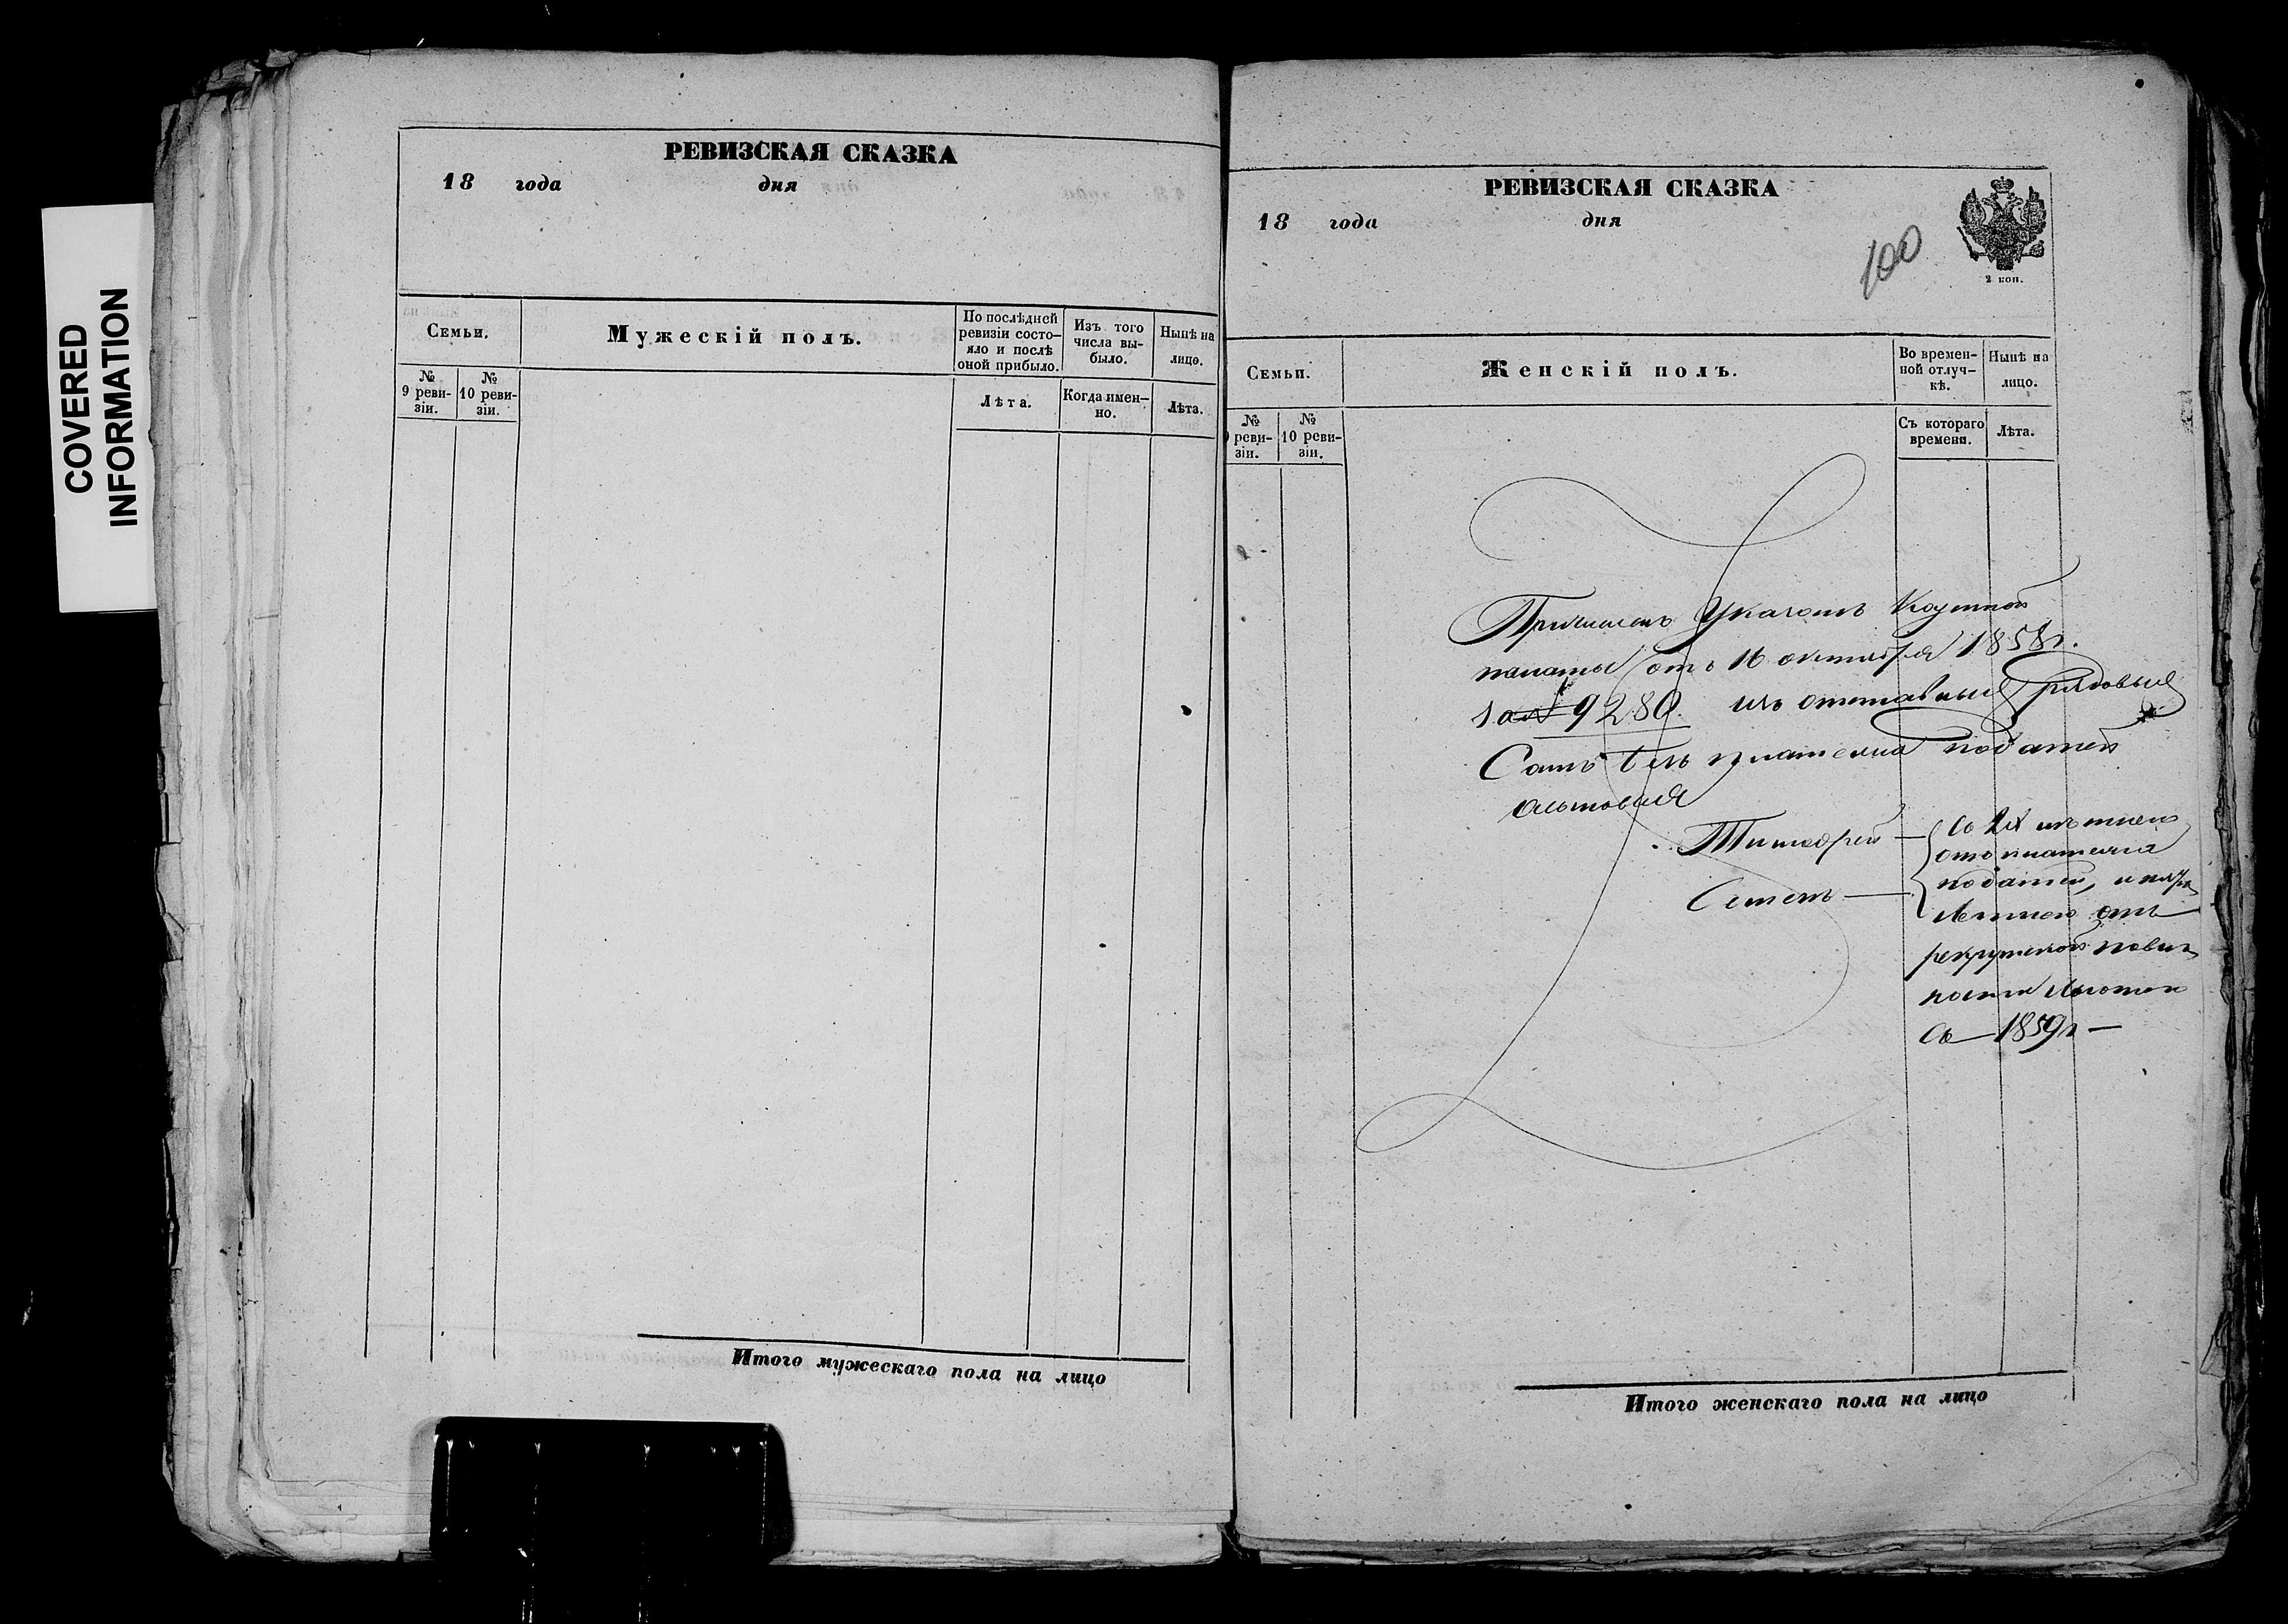 COVERED
INFORMATION
РЕВИЗСКАЯ СКАЗКА
18 года дня
Семьи.
Мужескій полъ.
По послѣдней
ревизіи состо-
яло и послѣ
оной прибыло.
Изъ того
числа вы-
было.
Нынѣ на
лицо.
№
9 реви-
зіи.
№
10 реви-
зіи.
Лѣта.
Когда имен-
но.
Лѣта.
Итого мужескаго пола на лицо
РЕВИЗСКАЯ СКАЗКА
18 года дня
100
2 коп.
Семьи.
Женскій полъ.
Во времен-
ной отлуч-
кѣ.
Нынѣ на
лицо.
№
реви-
зіи.
№
10 реви-
зіи.
Съ котораго
времени.
Лѣта.
Причисленъ Указомъ Казенной
палаты отъ 16 октября 1858г.
за № 9280. изъ отставные рядовые
Самъ безъ платежа податей
Тимофей
Семенъ
отъ платежа
податей,
отъ
рекрутской повин
ности льготою
съ 1859г
Итого женскаго пола на лицо